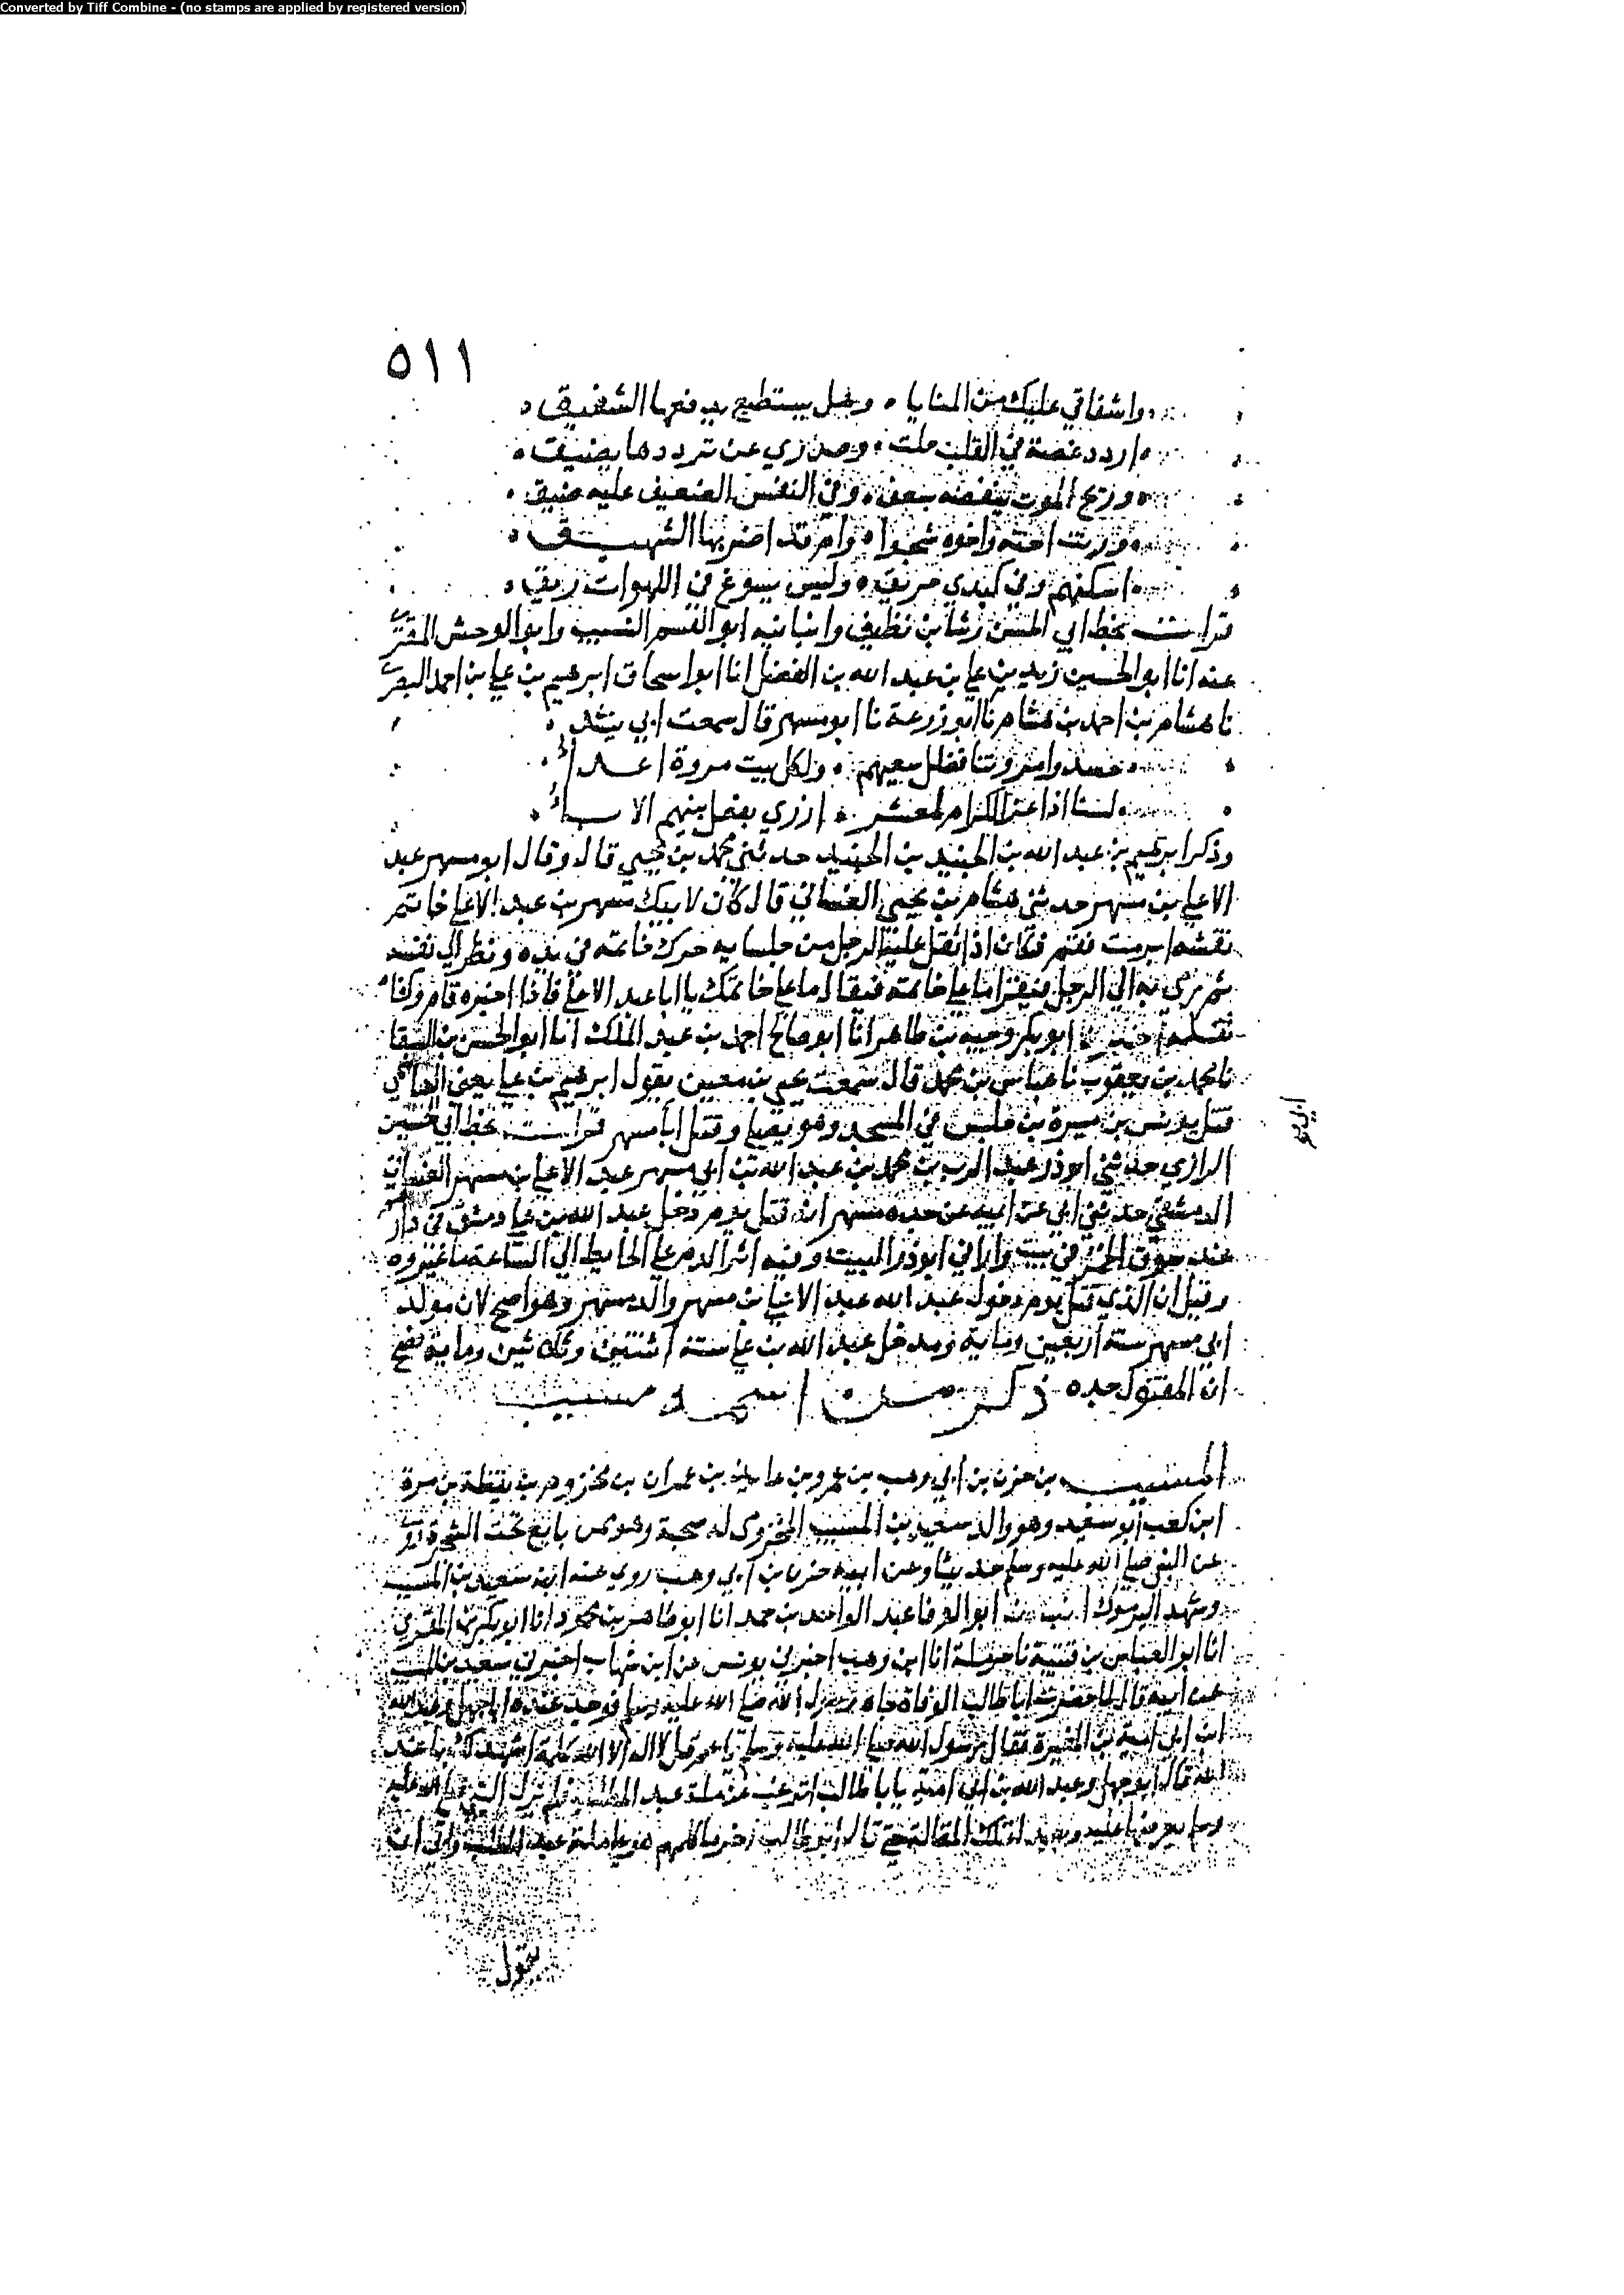 Converted by Tiff Combine - (no stamps are applied by registered version)
٥١١
واشفاقي عليك من المنايا وهل يستطيع يدفعها الشفيق
اردد غصة في القلب حلت وصدري عن ترددها يضيق
وريح الموت ينفضه بعنف وفي النفس الضعيف عليه ضيق
ورت اخته واخوه شجوا وام قد اضر بها الشهيق
اسكنهم وفي كبدي حريق وليس يسوغ في اللهوات ريق
قرات بخط ابي الحسن رشا بن نظيف وانبانيه ابو القسم النسيب وابو الوحش المقرى
عنه انا ابو الحسين زيد بن علي بن عبد الله بن الفضل انا ابو اسحاق ابرهيم بن علي بن احمد البصرى
نا هشام بن احمد بن هشام نا ابو زرعة نا ابو مسهر قال سمعت ابي ينشد
حسدوا مروتنا فضلل سعيهم ولكل بيت مروة اعداء
لسنا اذا عد الكرام لمعشر ازرى بفعل بنيهم الاباء
وذكر ابرهيم بن عبد الله بن الجنيد بن الجنيد حدثني محمد بن يحيى قال وقال ابو مسهر عبد
الاعلى بن مسهر حدثني هشام بن يحيى الغساني قال كان لابيك مسهر بن عبد الاعلى خاتم
نقشه ابرمت فقم فكان اذا ثقل عليه الرجل من جلسايه حرك خاتمه في يده ونظر الى نقشه
ثم رمى به الى الرجل فيقرا ما على خاتمه فيقال ما على خاتمك يا ابا عبد الاعلى فاذا اخبره قام وكفاه
ثقله اخبرنا ابو بكر وجيه بن طاهر انا ابو صالح احمد بن عبد الملك انا ابو الحسن بن السقا
نا محمد بن يعقوب نا عباس بن محمد قال سمعت يحيى بن معين يقول ابرهيم بن علي يعني
قتل يونس بن ميسرة بن حلبس في المسجد وهو يصلي وقتل ابا مسهر قرات بخط ابي الحسين
الرازي حدثني ابو ذر عبد الرب بن محمد بن عبد الله بن ابي مسهر عبد الاعلى بن مسهر الغساني
الدمشقي حدثني ابي عن ابيه عن جده مسهر انه قتل يوم دخل عبد الله بن علي دمشق في دار
عند سوق الخبز في بيت واراني ابو ذر البيت وفيه اثر الدم على الحايط الى الساعة ما غيروه
وقيل ان الذي قتل يوم دخول عبد الله عبد الاعلى بن مسهر والد مسهر وهو اصح لان مولد
ابي مسهر سنة اربعين وماية ومدخل عبد الله بن علي سنة اثنتين وثلاثين وماية فصح
ان المقتول جده ذكر من اسمه مسيب
المسيب بن حزن بن ابي وهب بن عمرو بن عايذ بن عمران بن مخزوم بن يقظة بن مرة
ابن كعب ابو سعيد وهو والد سعيد بن المسيب المخزومي له صحبة وهو ممن بايع تحت الشجرة روى
عن النبي صلى الله عليه وسلم حديثا وعن ابيه حزن بن ابي وهب روى عنه ابنه سعيد بن المسيب
وشهد اليرموك ابو الوفا عبد الواحد بن حمد انا ابو طاهر بن محمود انا ابو بكر بن المقرى
انا ابو العباس بن قتيبة نا حرملة انا ابن وهب اخبرني يونس عن ابن شهاب اخبرني سعيد بن المسيب
عن ابيه قال لما حضرت ابا طالب الوفاة جاه رسول الله صلى الله عليه وسلم فوجد عنده ابا جهل وعبد الله
ابن ابي امية بن المغيرة فقال رسول الله صلى الله عليه وسلم يا عم قل لا اله الا الله كلمة اشهد لك بها عند
الله قال ابو جهل وعبد الله بن ابي امية يا با طالب اترغب عن ملة عبد المطلب فلم يزل النبي صلى الله عليه
وسلم يعرضها عليه ويعيد له تلك المقالة حتى قال ابو طالب اخر ما كلمهم هو على ملة عبد المطلب وابى ان
يقول